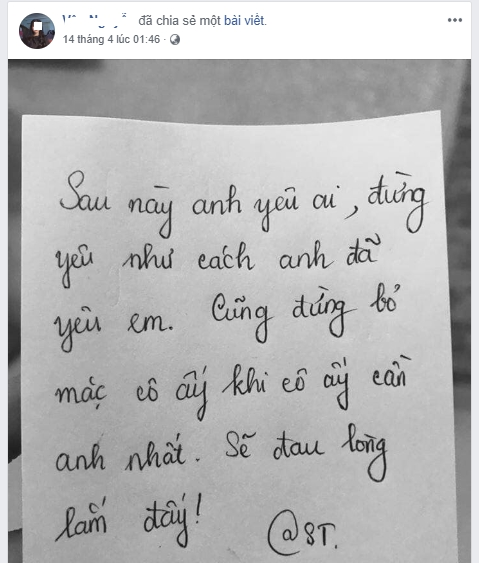 đã chia sẻ một bài viết.
14 tháng 4 lúc 01:46 ·
Sau này anh yêu ai, đừng
yêu như cách anh đã
yêu em. Cũng đừng bỏ
mặc cô ấy khi cô ấy cần
anh nhất. Sẽ đau lòng
lắm đấy!
@ST.